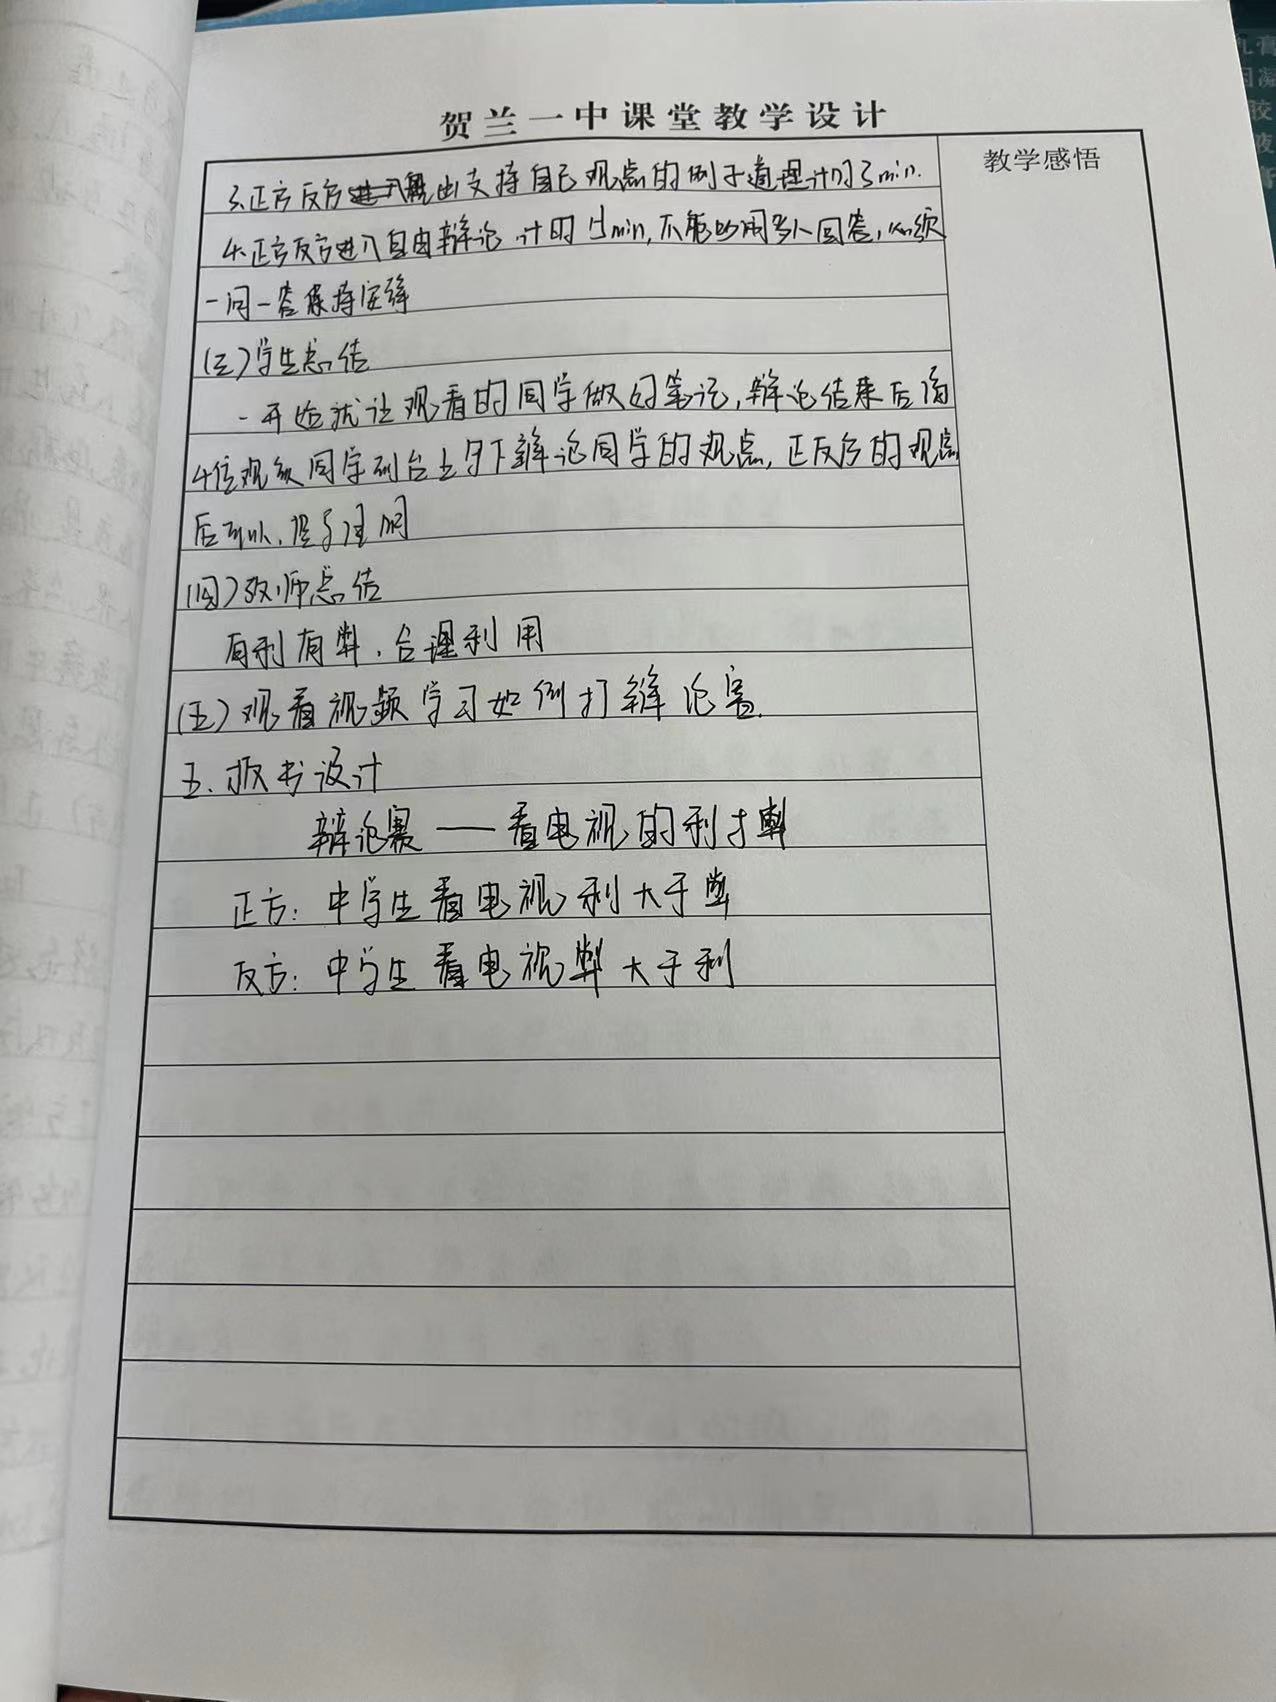 贺兰一中课堂教学设计
教学感悟
3.正方反方 出支持自己观点的例子道理计时5min.
4.正方反方进入自由辩论.计时15min,不能 多人回答,必须
一问一答保持安静
(三)学生总结
一开始就让观看的同学做好笔记,辩论结束后请
4位观众同学到台上 下辩论同学的观点,正反方的观点
后可以,
(四)教师总结
有利有弊.合理利用
(五)观看视频学习如何打辩论赛.
五.板书设计
辩论赛——看电视的利与弊
正方:中学生看电视利大于弊
反方:中学生看电视弊大于利